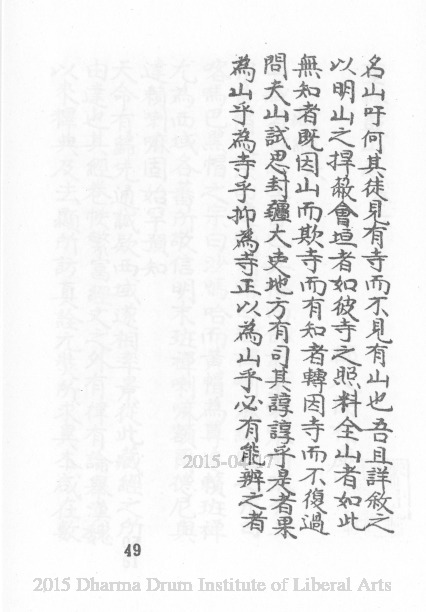 名山吁何其徒見有寺而不見有山也吾且詳敘之
以明山之捍蔽會垣者如彼寺之照料全山者如此
無知者既因山而欺寺而有知者轉因寺而不復過
問夫山試思封疆大吏地方有司其諄諄乎是者果
為山乎為寺乎抑為寺正以為山乎必有能辨之者
49
2015 Dharma Drum Institute of Liberal Arts